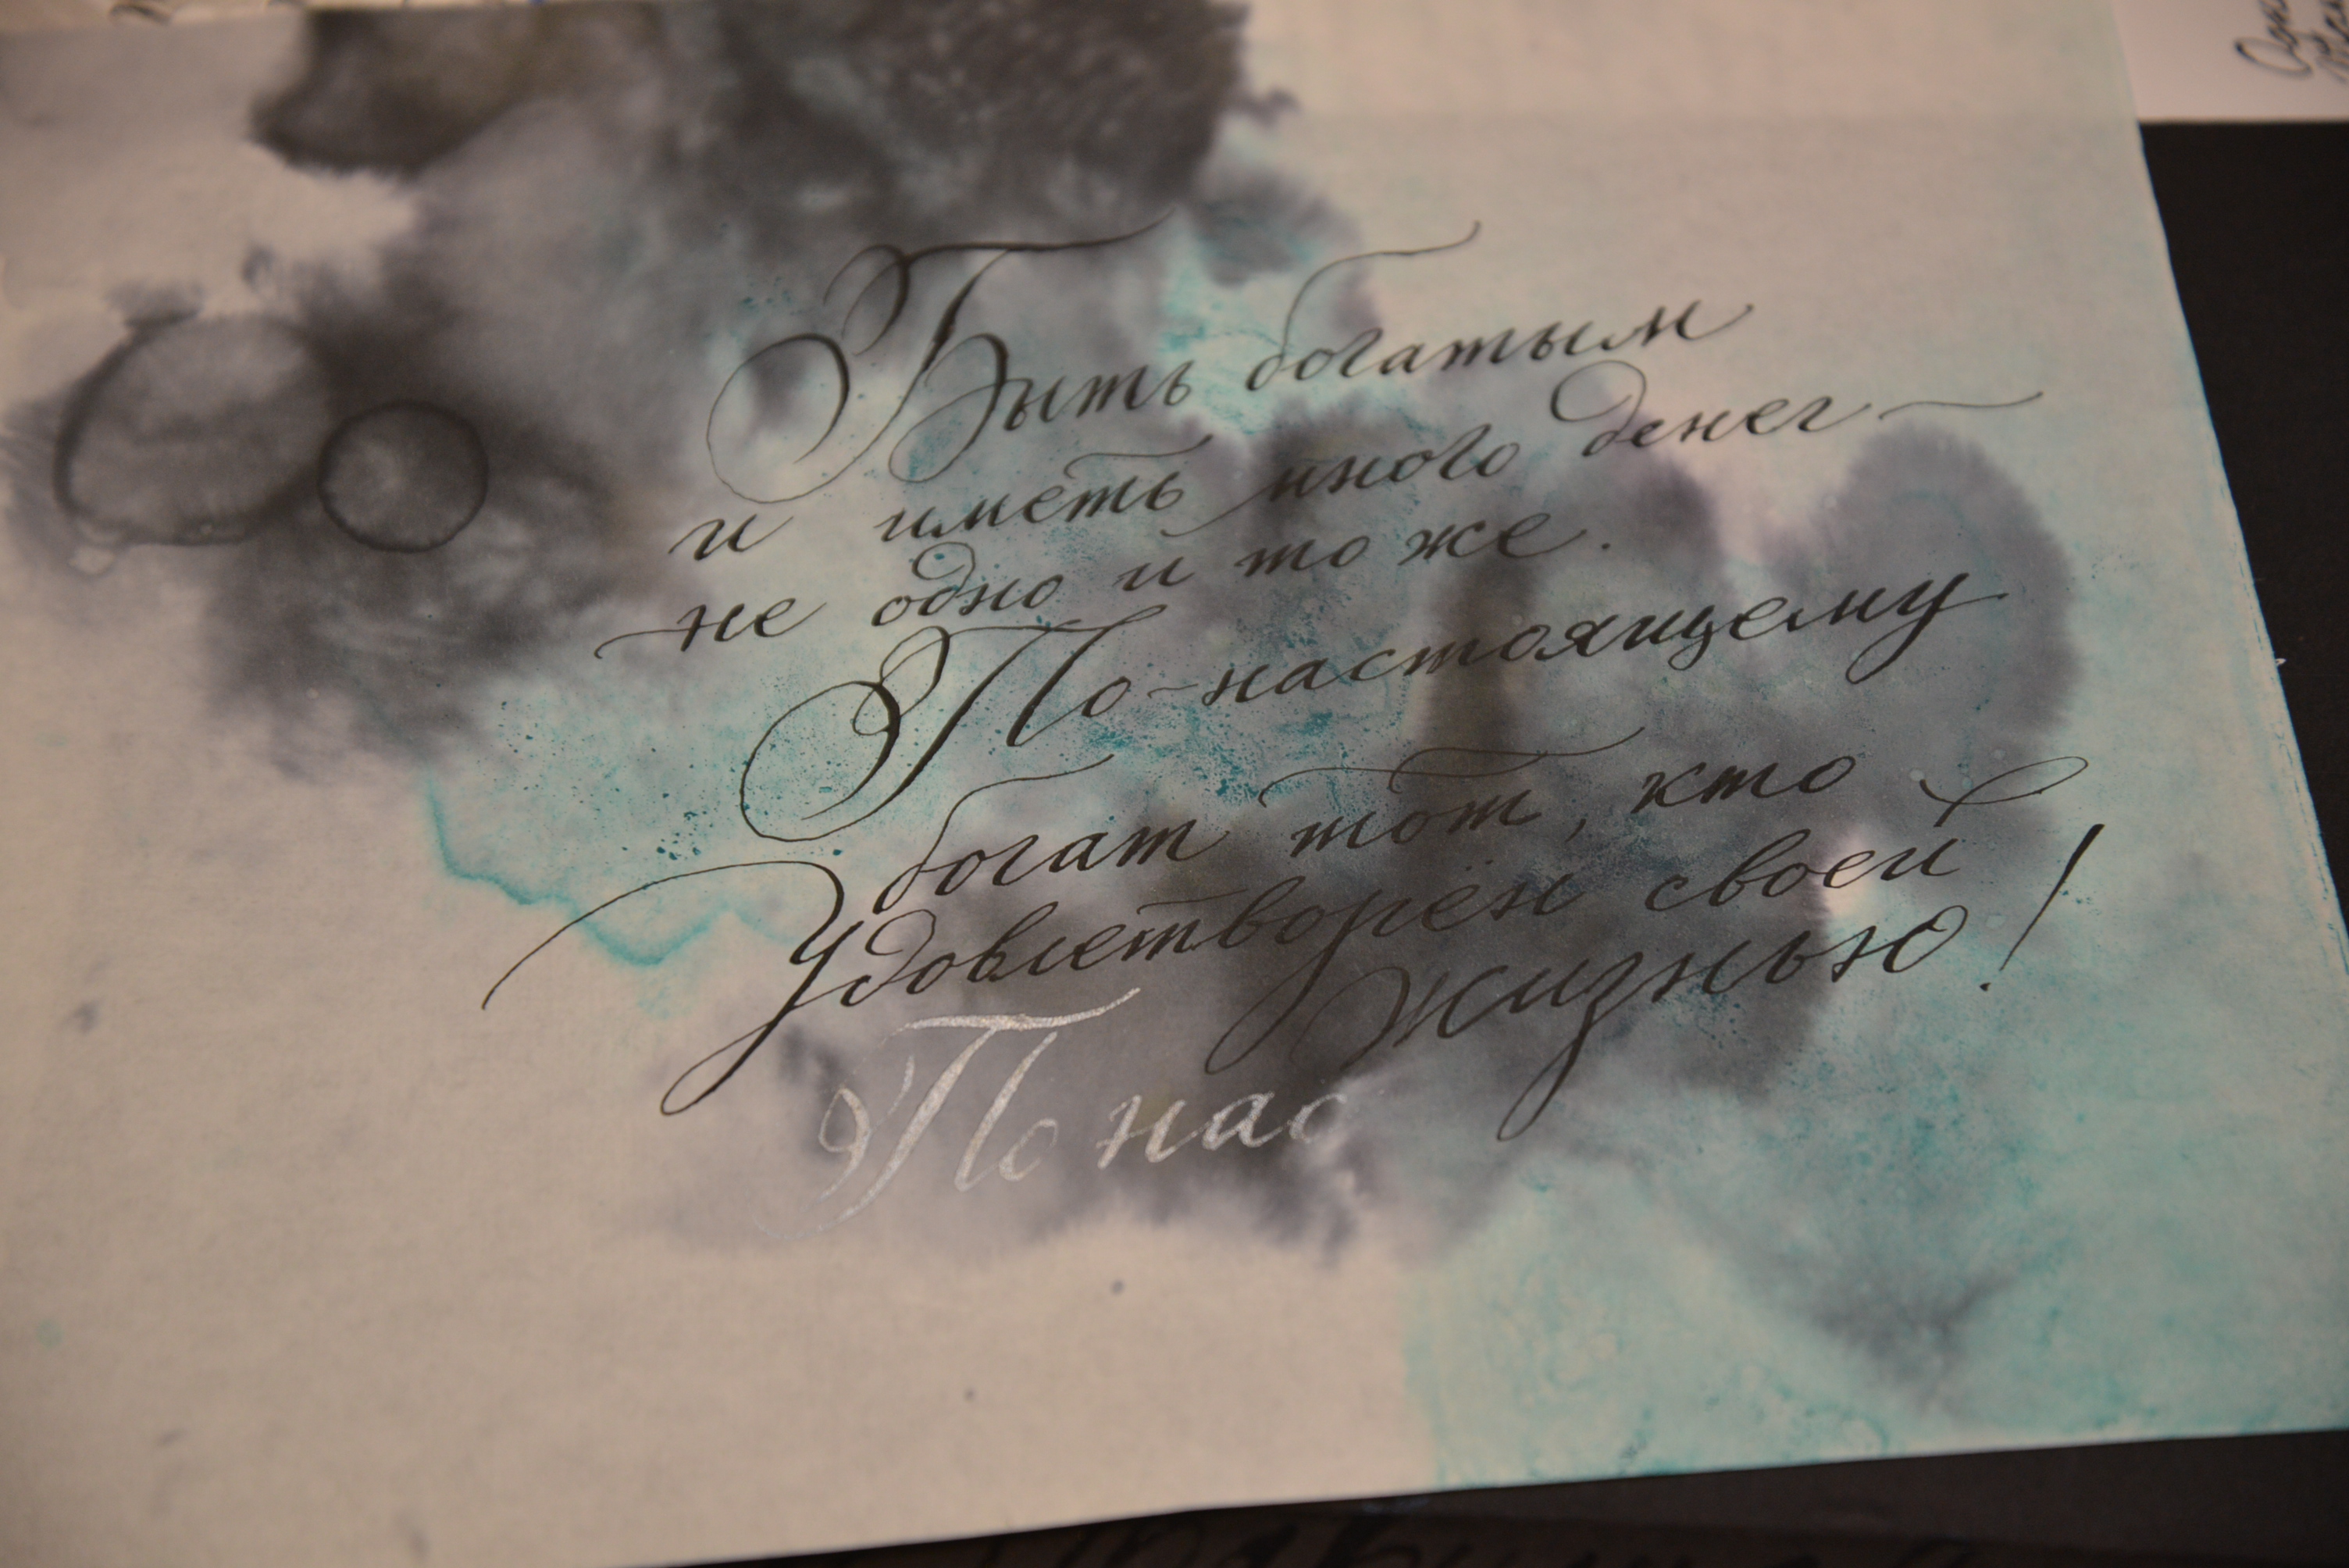 Быть богатым
и иметь много денег —
не одно и то же.
По-настоящему
богат тот, кто
удовлетворён своей
жизнью!
По нас